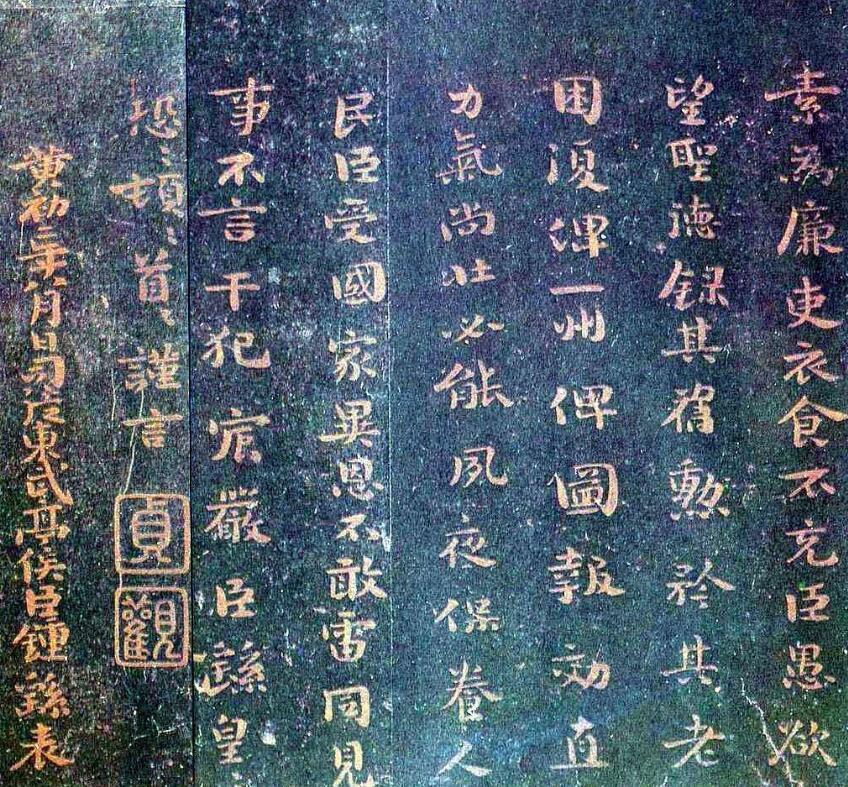 素為廉吏衣食不充臣愚欲
望聖德錄其舊勳矜其老
困復俾一州俾圖報効直
力氣尚壯必能夙夜保養人
民臣受國家異恩不敢雷同見
事不言干犯宸嚴臣繇皇〻
恐〻頓〻首〻謹言
貞
觀
黃初二年八月日司徒東武亭侯臣鍾繇表